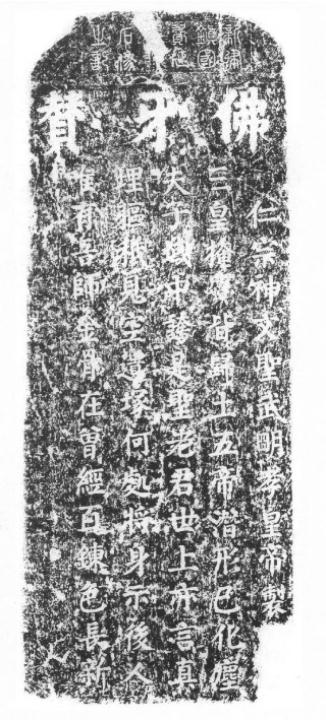 佛牙賛
仁宗神文聖武明孝皇帝製
三皇掩質皆歸土五帝潛形已化塵
夫子域中誇是聖老君世上亦言真
埋軀祇見空遺塚何處將身示後人
有吾師金骨在曾經百鍊色長新